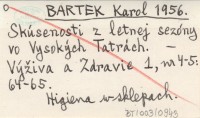 BARTEK Karol 1956.
Skúsenosti z letnej sezóny
vo Vysokých Tatrách. –
Výživa a Zdravie 1, № 4-5:
64-65.
Higiena w sklepach.